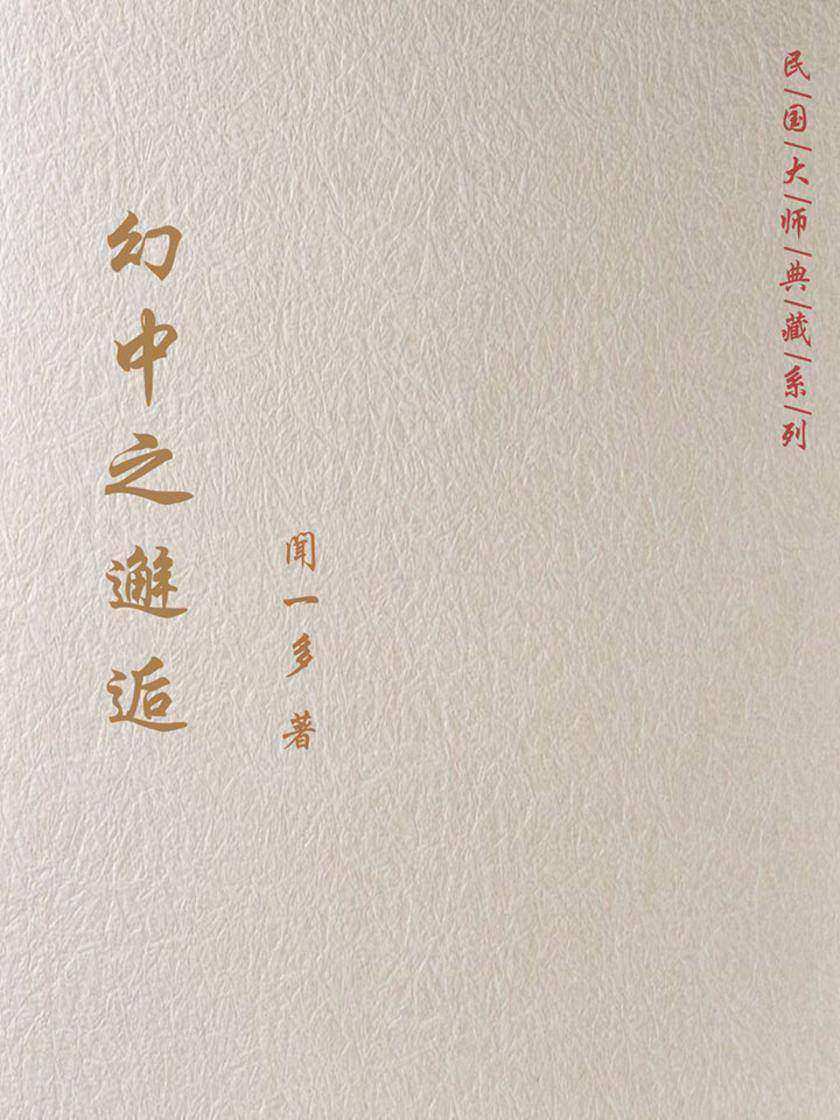 民|国|大|师|典|藏|系|列
幻中之邂逅
闻一多 著